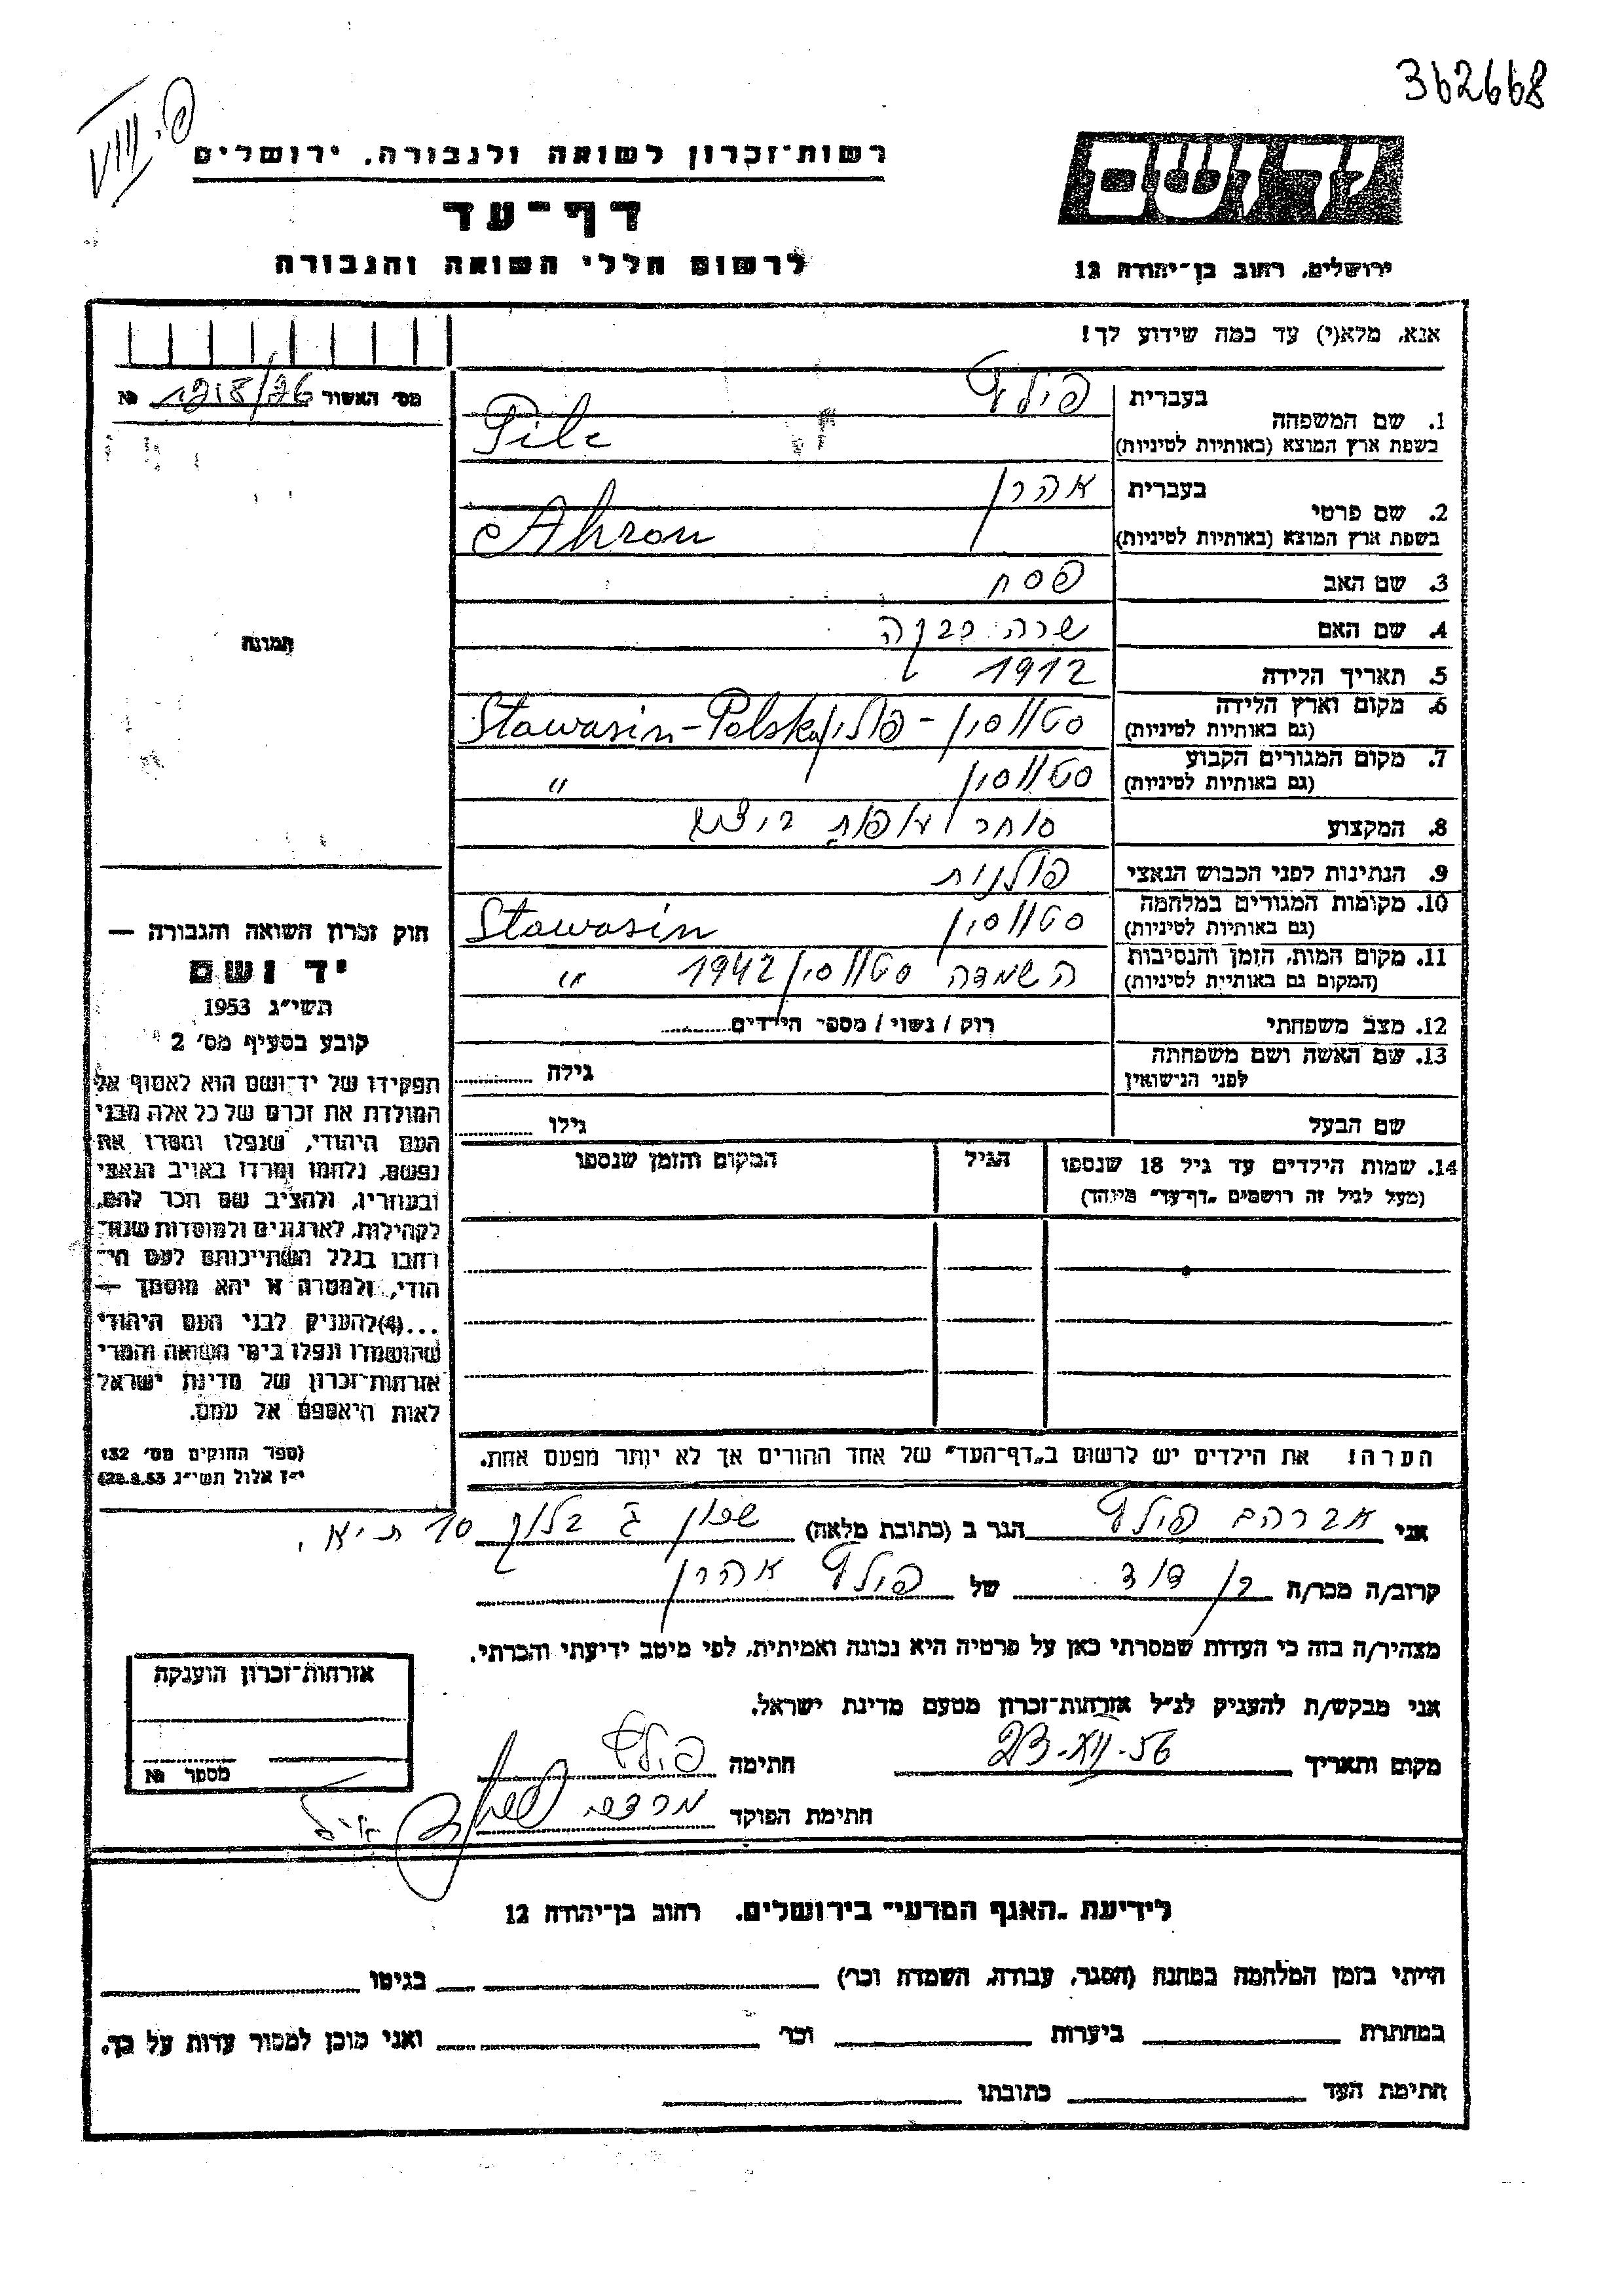 362668
פ. VIII
רשות־זכרון לשואה ולגבורה. ירושלים
דף־עד
לרשום חללי השואה והגבורה
יד ושם
ירושלים, רחוב בן־יהודה 12
אנא, מלא(י) עד כמה שידוע לך!
מס׳ האשור 1218/76 №
1. שם המשפחה
בעברית
פילץ
בשפת ארץ המוצא (באותיות לטיניות)
Pilc
2. שם פרטי
בעברית
אהרן
בשפת ארץ המוצא (באותיות לטיניות)
Ahron
3. שם האב פסח
4. שם האם שרה רבקה
5. תאריך הלידה 1912
6. מקום וארץ הלידה סטווסין - פולין Stawasin-Polska
(גם באותיות לטיניות)
7. מקום המגורים הקבוע סטווסין "
(גם באותיות לטיניות)
8. המקצוע סוחר
9. הנתינות לפני הכבוש הנאצי פולנית
10. מקומות המגורים במלחמה סטווסין Stawasin
(גם באותיות לטיניות)
11. מקום המות, הזמן והנסיבות השמדה סטווסין 1942 "
(המקום גם באותיות לטיניות)
12. מצב משפחתי רוק / נשוי / מספר הילדים
13. שם האשה ושם משפחתה גילה
לפני הנישואין
שם הבעל גילו
14. שמות הילדים עד גיל 18 שנספו הגיל המקום והזמן שנספו
(מעל לגיל זה רושמים „דף־עד" מיוחד)
הערה: את הילדים יש לרשום ב„דף־העד" של אחד ההורים אך לא יותר מפעם אחת.
תמונה
חוק זכרון השואה והגבורה —
יד ושם
תשי״ג 1953
קובע בסעיף מס׳ 2
תפקידו של יד־ושם הוא לאסוף אל
המולדת את זכרם של כל אלה מבני
העם היהודי, שנפלו ומסרו את
נפשם, נלחמו ומרדו באויב הנאצי
ובעוזריו, ולהציב שם וזכר להם,
לקהילות, לארגונים ולמוסדות שנח־
רבו בגלל השתייכותם לעם הי־
הודי, ולמטרה זו יהא מוסמך —
...(4)להעניק לבני העם היהודי
שהושמדו ונפלו בימי השואה והמרי
אזרחות־זכרון של מדינת ישראל
לאות היאספם אל עמם.
(ספר החוקים מס׳ 132
י״ז אלול תשי״ג 28.8.53)
אני אברהם פילץ הגר ב (כתובת מלאה) שכון ג בלוק 10 ת״א.
קרוב/ה מכר/ה בן דוד של פילץ אהרן
מצהיר/ה בזה כי העדות שמסרתי כאן על פרטיה היא נכונה ואמיתית, לפי מיטב ידיעתי והכרתי.
אני מבקש/ת להעניק לנ״ל אזרחות־זכרון מטעם מדינת ישראל.
מקום ותאריך 23-XII-56 חתימה פילץ
חתימת הפוקד מרדכי
אזרחות־זכרון הוענקה
מספר №
לידיעת „האגף המדעי" בירושלים. רחוב בן־יהודה 12
הייתי בזמן המלחמה במחנה (הסגר, עבודה, השמדה וכר׳) בגיטו
במחתרת ביערות וכר׳ ואני מוכן למסור עדות על כך.
חתימת העד כתובתו